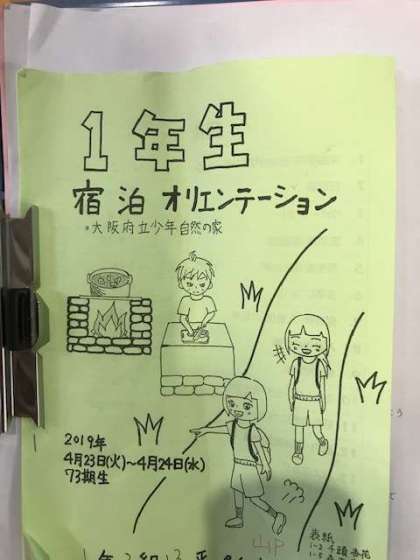 1年生
宿泊 オリエンテーション
*大阪府立少年自然の家
2019年
4月23日(火)～4月24日(水)
73期生
表紙